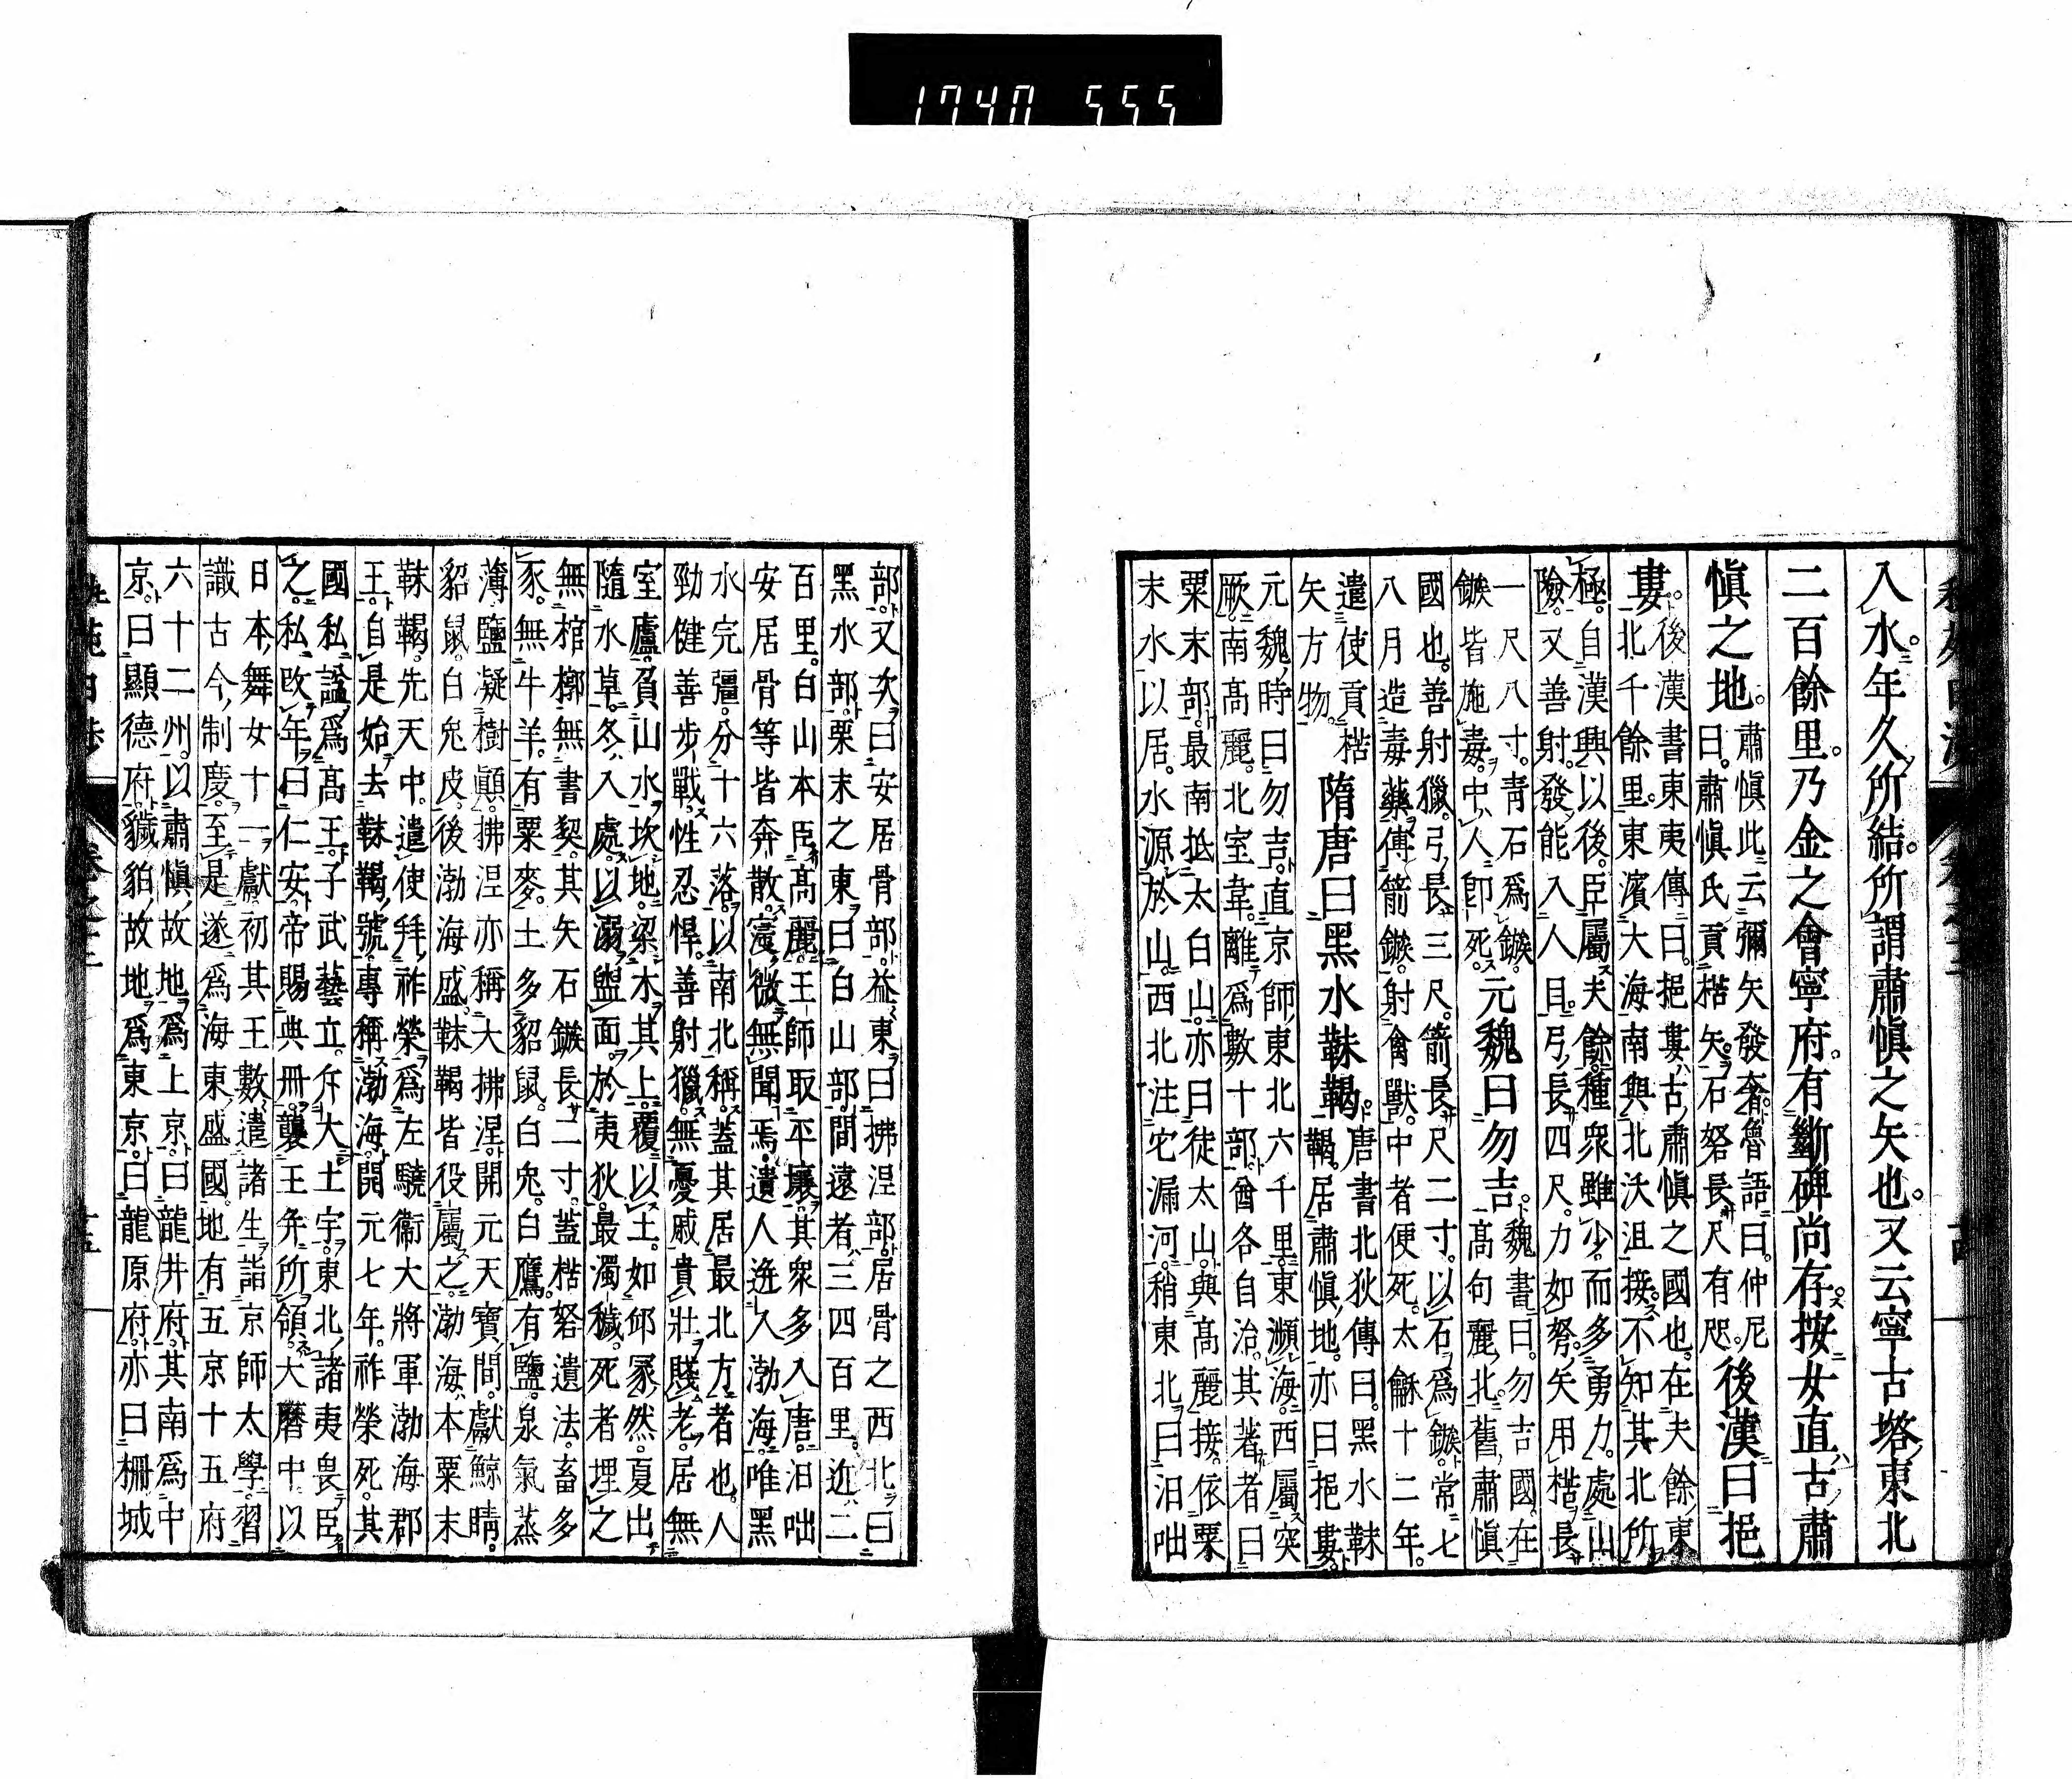 1740 555
入水。年久所結。所謂肅愼之矢也。又云寧古塔東北
二百餘里。乃金之會寧府。有斷碑尚存。按女直古肅
愼之地。
肅愼此云彌矢發奢。魯語曰。仲尼
曰。肅愼氏貢楛矢。石砮長尺有咫。
後漢曰挹
婁。
後漢書東夷傳曰。挹婁古肅愼之國也。在夫餘東
北千餘里。東濱大海。南與北沃沮接。不知其北所
極。自漢興以後。臣屬夫餘。種衆雖少。而多勇力。處山
險。又善射。發能入人目。弓長四尺。力如弩。矢用楛。長
一尺八寸。青石爲鏃。
鏃皆施毒。中人即死。
元魏曰勿吉。
魏書曰。勿吉國在
高句麗北。舊肅愼
國也。善射獵。弓長三尺。箭長尺二寸。以石爲鏃。常七
八月造毒藥。傅箭鏃。射禽獸。中者便死。太龢十二年。
遣使貢楛
矢方物。
隋唐曰黑水靺鞨。
唐書北狄傳曰。黑水靺
鞨。居肅愼地。亦曰挹婁。
元魏時曰勿吉。直京師東北六千里。東瀕海。西屬突
厥。南高麗。北室韋。離爲數十部。酋各自治。其著者曰
粟末部。最南抵太白山。亦曰徒太山。與高麗接。依粟
末水以居。水源於山。西北注它漏河。稍東北曰汨咄
部。又次曰安居骨部。益東曰拂涅部。居骨之西北曰
黑水部。粟末之東曰白山部。間遠者三四百里。近二
百里。白山本臣高麗。王師取平壤。其衆多入唐。汨咄
安居骨等皆奔散。寖微無聞焉。遺人迸入渤海。唯黑
水完彊。分十六落。以南北稱。蓋其居最北方者也。人
勁健善步戰。性忍悍。善射獵。無憂戚。貴壯賤老。居無
室廬。負山水坎地。梁木其上。覆以土。如邱冢然。夏出
隨水草。冬入處。以溺盥面。於夷狄最濁穢。死者埋之
無棺槨。無書契。其矢石鏃長二寸。蓋楛砮遺法。畜多
豕。無牛羊。有粟麥。土多貂鼠。白兔。白鷹。有鹽泉。氣蒸
薄。鹽凝樹顚。拂涅亦稱大拂涅。開元天寶間。獻鯨睛。
貂鼠。白兔皮。後渤海盛。靺鞨皆役屬之。渤海本粟末
靺鞨。先天中。遣使拜祚榮爲左驍衞大將軍渤海郡
王。自是始去靺鞨號。專稱渤海。開元七年。祚榮死。其
國私謚爲高王。子武藝立。斥大土宇。東北諸夷畏臣
之。私改年曰仁安。帝賜典册。襲王并所領。大曆中。以
日本舞女十一獻。初其王數遣諸生詣京師太學。習
識古今制度。至是遂爲海東盛國。地有五京十五府
六十二州。以肅愼故地爲上京。曰龍井府。其南爲中
京。曰顯德府。穢貊故地爲東京。曰龍原府。亦曰柵城